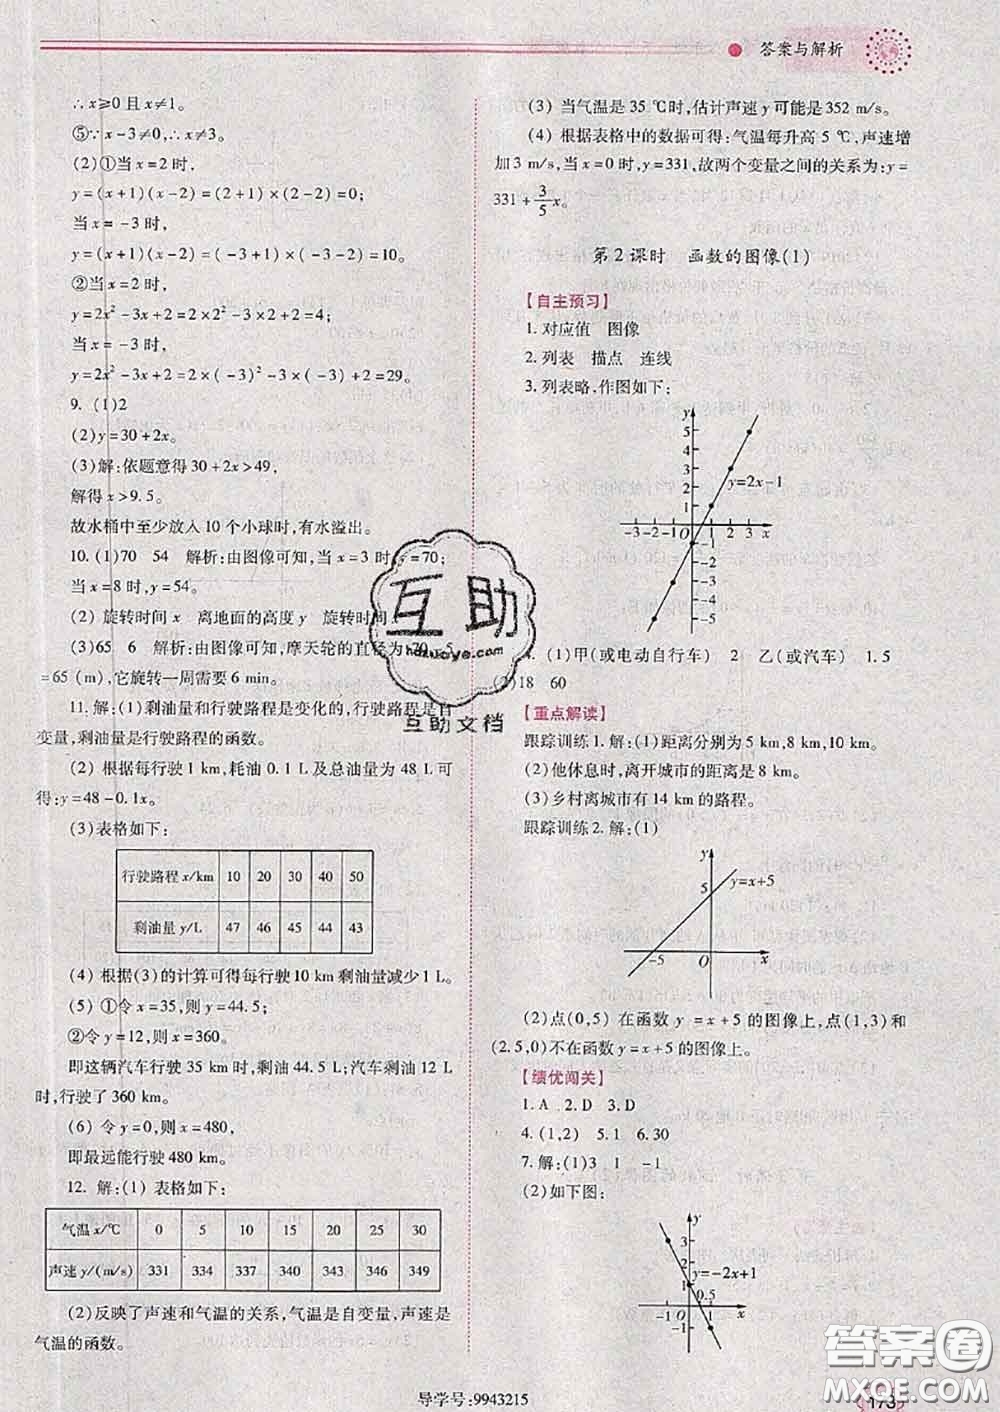 答案与解析
∴x≥0且x≠1。
⑤∵x-3≠0,∴x≠3。
(2)①当x=2时,
y=(x+1)(x-2)=(2+1)×(2-2)=0;
当x=-3时,
y=(x+1)(x-2)=(-3+1)×(-3-2)=10。
②当x=2时,
y=2x²-3x+2=2×2²-3×2+2=4;
当x=-3时,
y=2x²-3x+2=2×(-3)²-3×(-3)+2=29。
9. (1)2
(2)y=30+2x。
(3)解:依题意得30+2x>49,
解得x>9.5。
故水桶中至少放入10个小球时,有水溢出。
10. (1)70 54 解析:由图像可知,当x=3时,y=70;
当x=8时,y=54。
(2)旋转时间x 离地面的高度y 旋转时间
(3)65 6 解析:由图像可知,摩天轮的直径为70-5
=65(m),它旋转一周需要6 min。
11. 解:(1)剩油量和行驶路程是变化的,行驶路程是自
变量,剩油量是行驶路程的函数。
(2)根据每行驶1 km,耗油0.1 L及总油量为48 L可
得:y=48-0.1x。
(3)表格如下:
行驶路程x/km 10 20 30 40 50
剩油量y/L 47 46 45 44 43
(4)根据(3)的计算可得每行驶10 km剩油量减少1 L。
(5)①令x=35,则y=44.5;
②令y=12,则x=360。
即这辆汽车行驶35 km时,剩油44.5 L;汽车剩油12 L
时,行驶了360 km。
(6)令y=0,则x=480,
即最远能行驶480 km。
12. 解:(1)表格如下:
气温x/℃ 0 5 10 15 20 25 30
声速y/(m/s) 331 334 337 340 343 346 349
(2)反映了声速和气温的关系,气温是自变量,声速是
气温的函数。
(3)当气温是35 ℃时,估计声速y可能是352 m/s。
(4)根据表格中的数据可得:气温每升高5 ℃,声速增
加3 m/s,当x=0时,y=331,故两个变量之间的关系为:y=
331+3/5x。
第2课时 函数的图像(1)
【自主预习】
1. 对应值 图像
2. 列表 描点 连线
3. 列表略,作图如下:
y
5
4
3
2
1
y=2x-1
-3 -2 -1 O 1 2 3 x
-1
-2
-3
-4
-5
(1)甲(或电动自行车) 2 乙(或汽车) 1.5
(2)18 60
【重点解读】
跟踪训练1. 解:(1)距离分别为5 km,8 km,10 km。
(2)他休息时,离开城市的距离是8 km。
(3)乡村离城市有14 km的路程。
跟踪训练2. 解:(1)
y
5
y=x+5
-5 O x
(2)点(0,5)在函数y=x+5的图像上,点(1,3)和
(2.5,0)不在函数y=x+5的图像上。
【绩优闯关】
1. A 2. D 3. D
4. (1,2) 5. 1 6. 30
7. 解:(1)3 1 -1
(2)如下图:
y
3
2
1
y=-2x+1
0.5
-1 O 1 x
-1
互助
hdzuoye.com
互助文档
导学号:9943215
173
答案圈
MXQE.COM